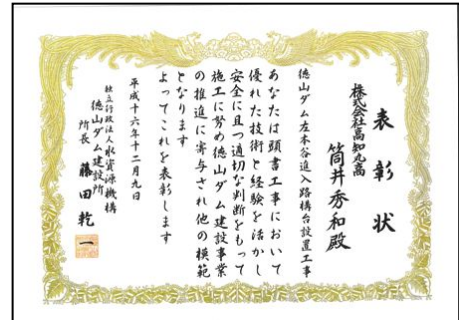 表彰状
株式会社高知丸高
筒井秀和殿
徳山ダム左本谷進入路構台設置工事
あなたは頭書工事において
優れた技術と経験を活かし
安全に且つ適切な判断をもって
施工に努め徳山ダム建設事業
の推進に寄与され他の模範
となります
よってこれを表彰します
平成十六年十二月九日
独立行政法人水資源機構
徳山ダム建設所
所長 藤田乾一